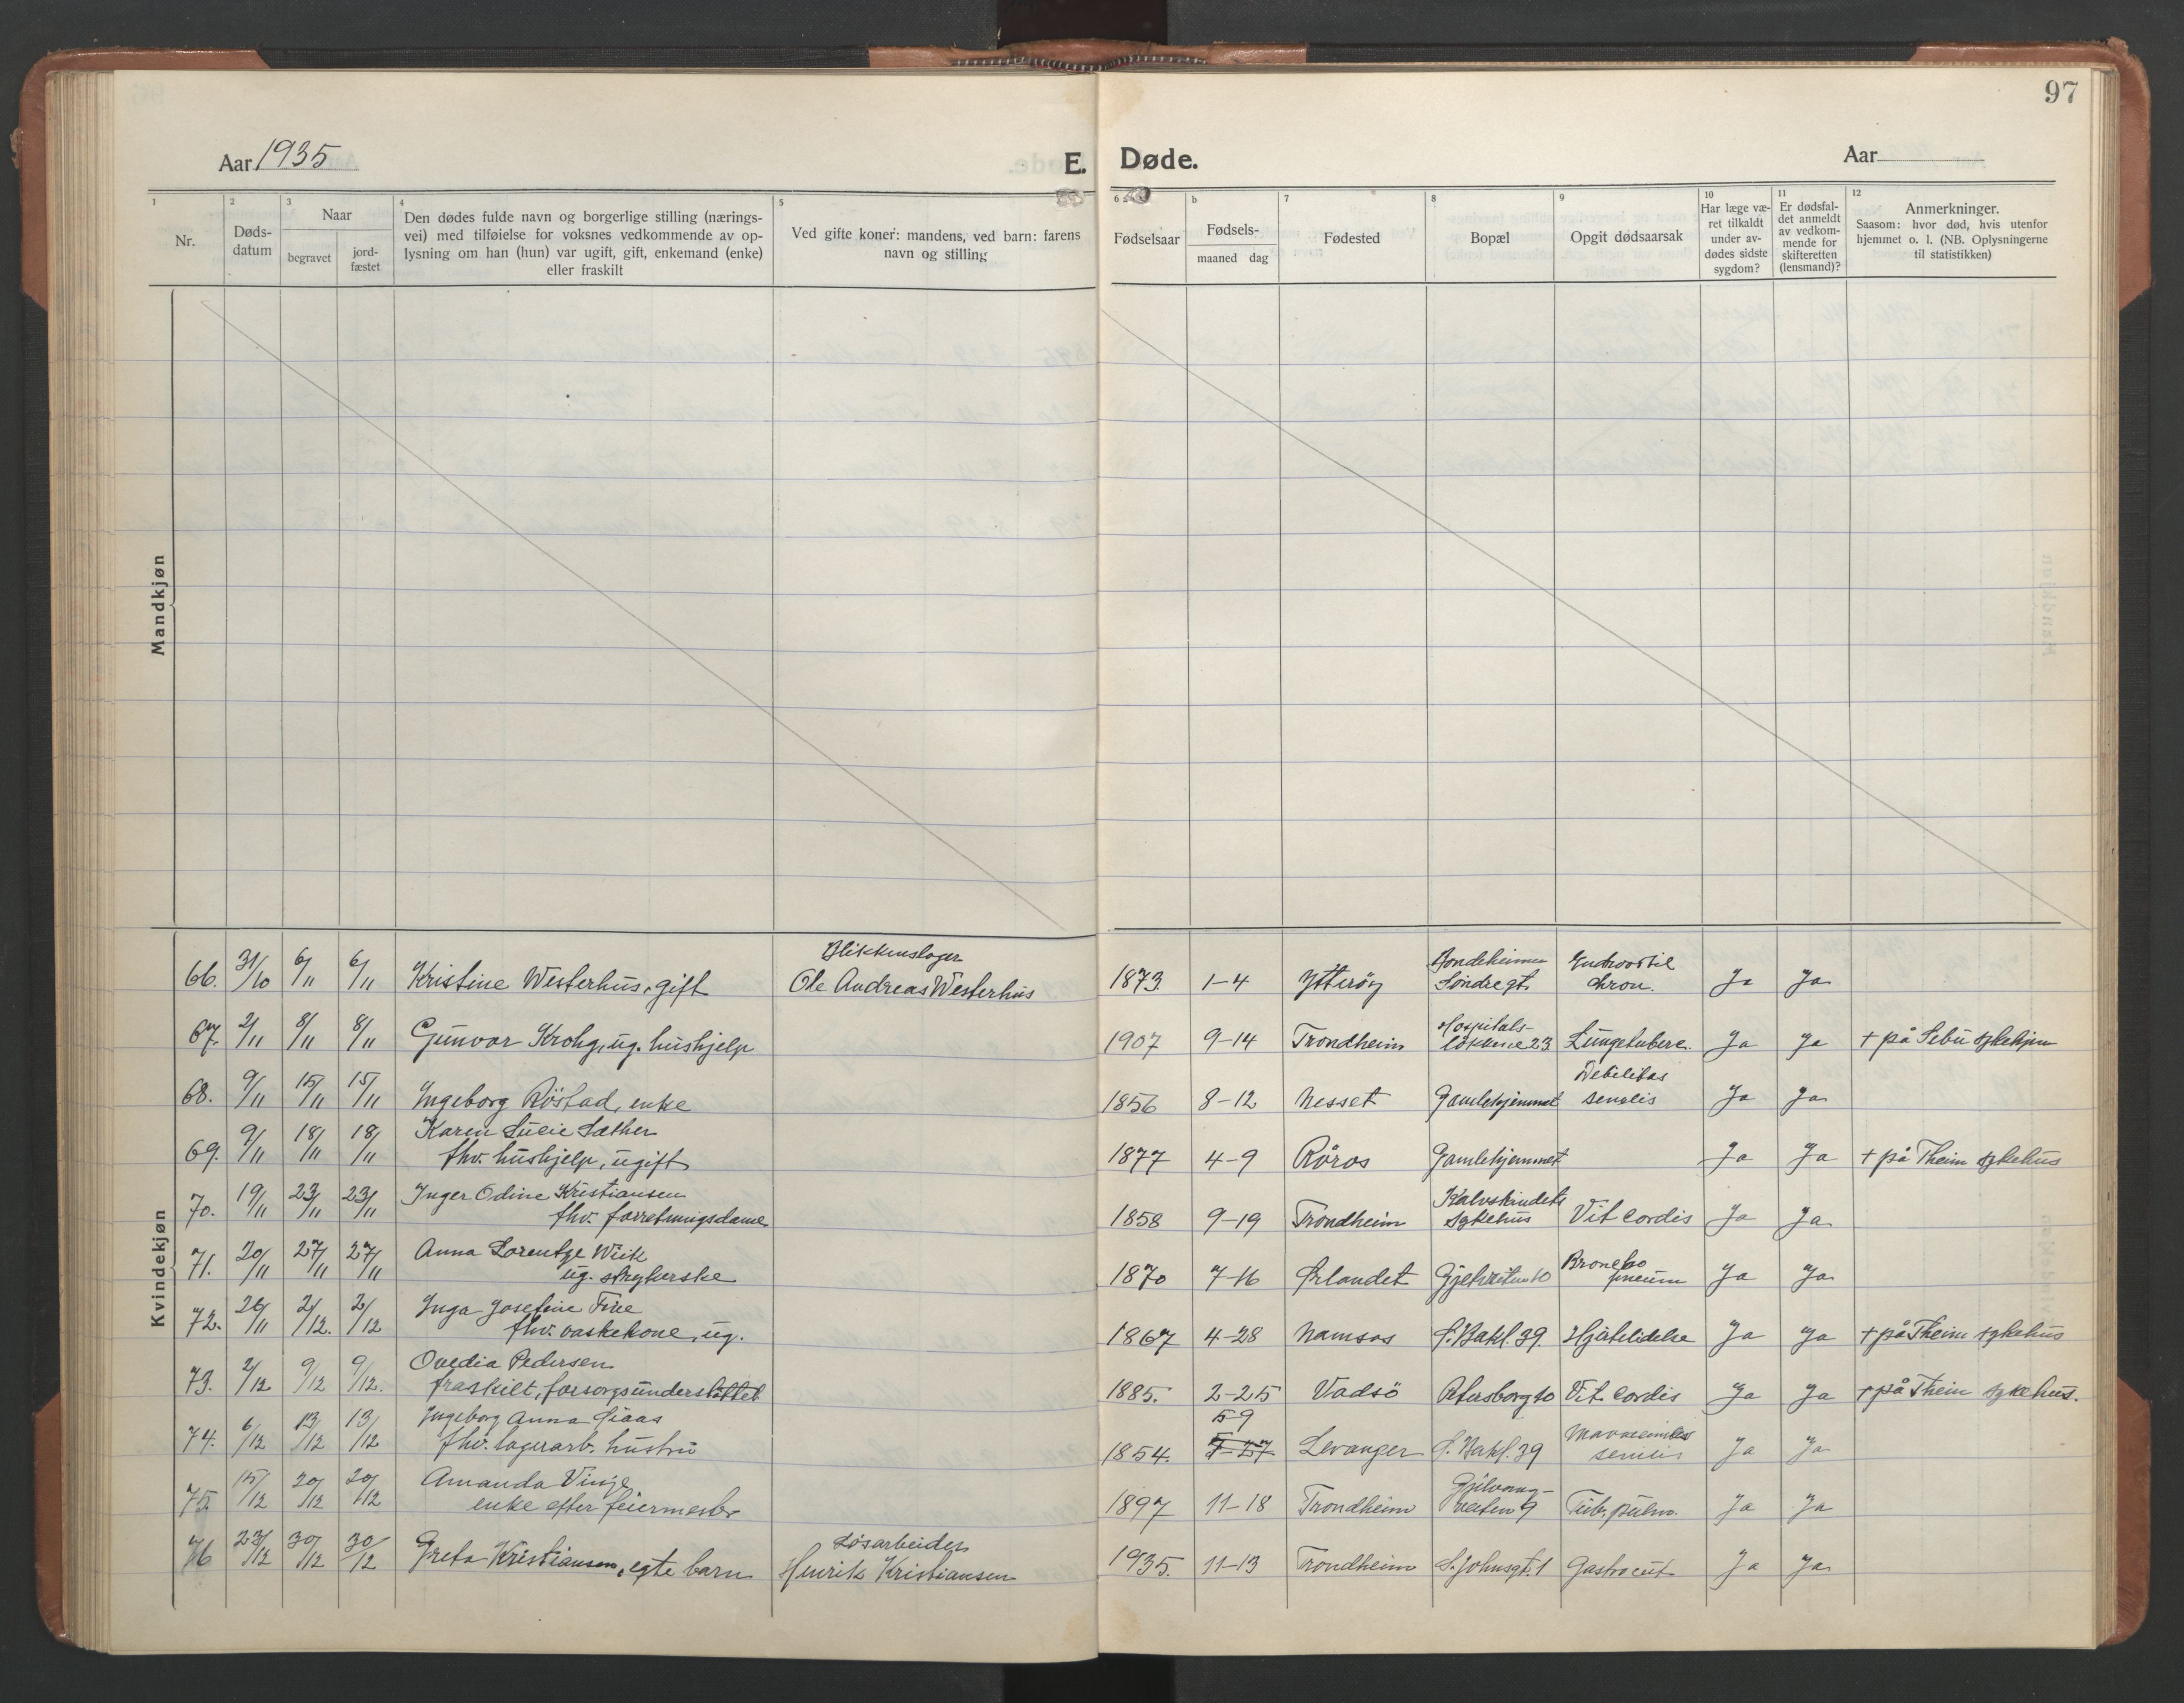 97
Aar 1935
E. Døde.
Aar
1 2 3 4 5 6 b 7 8 9 10 11 12
Nr.
Døds-
datum
Naar
begravet
jord-
fæstet
Den dødes fulde navn og borgerlige stilling (nærings-
vei) med tilføielse for voksnes vedkommende av op-
lysning om han (hun) var ugift, gift, enkemand (enke)
eller fraskilt
Ved gifte koner: mandens, ved barn: farens
navn og stilling
Fødselsaar
Fødsels-
maaned dag
Fødested
Bopæl
Opgit dødsaarsak
Har læge væ-
ret tilkaldt
under av-
dødes sidste
sygdom?
Er dødsfal-
det anmeldt
av vedkom-
mende for
skifteretten
(lensmand)?
Anmerkninger.
Saasom: hvor død, hvis utenfor
hjemmet o. l. (NB. Oplysningerne
til statistikken)
Mandkjøn
Kvindekjøn
Blikkenslager Bondeheimen
66. 31/10 6/11 6/11 Kristine Westerhus, gift Ole Andreas Westerhus 1873 1-4 Ytterøy Søndregt. chron. Ja Ja
Hospitals-
67. 2/11 8/11 8/11 Gunvor Krohg, ug. hushjelp 1907 9-14 Trondheim løkkene 23 Lungetuberc. Ja Ja + på Sebu sykehjem
Debilitas
68. 9/11 15/11 15/11 Ingeborg Röstad, enke 1856 8-12 Nesset Gamlehjemmet senilis Ja Ja
Karen Lucie Sæther
69. 9/11 18/11 18/11 fhv. hushjelp, ugift 1877 4-9 Röros Gamlehjemmet Ja Ja + på Theim sykehus
Inger Odine Kristiansen Kalvskindets
70. 19/11 23/11 23/11 fhv. forretningsdame 1858 9-19 Trondheim sykehus Vit. cordis Ja Ja
Anna Lorentze Wiik
71. 20/11 27/11 27/11 ug. strykerske 1870 7-16 Ørlandet Gjelvetten 10 Ja Ja
Inga Josefine Fine
72. 26/11 2/12. 2/12 fhv. vaskekone, ug. 1867 4-28 Namsos S. Bakl. 39. Hjertelidelse Ja Ja + på Theim sykehus
Ovedia Pedersen
73. 2/12 9/12 9/12. fraskilt, forsorgsunderstøttet 1885. 2-25 Vadsö Petersborg 10 Vit. cordis Ja Ja + på Theim sykehus.
Ingeborg Anna 5 9
74. 6/12 13/12 13/12 fhv. lagerarb. hustru 1854. Levanger S. Bakl. 39 senilis Ja Ja
Amanda Vinje Gjelvang-
75. 15/12 20/12 20/12 enke efter feiermester 1897 11-18 Trondheim veiten 9 Tub. pulm. Ja Ja
Løsarbeider
76 23/12 30/12 30/12 Greta Kristiansen, egte barn Henrik Kristiansen 1935. 11-13 Trondheim St. Johnsgt. 1 Gastroent. Ja Ja